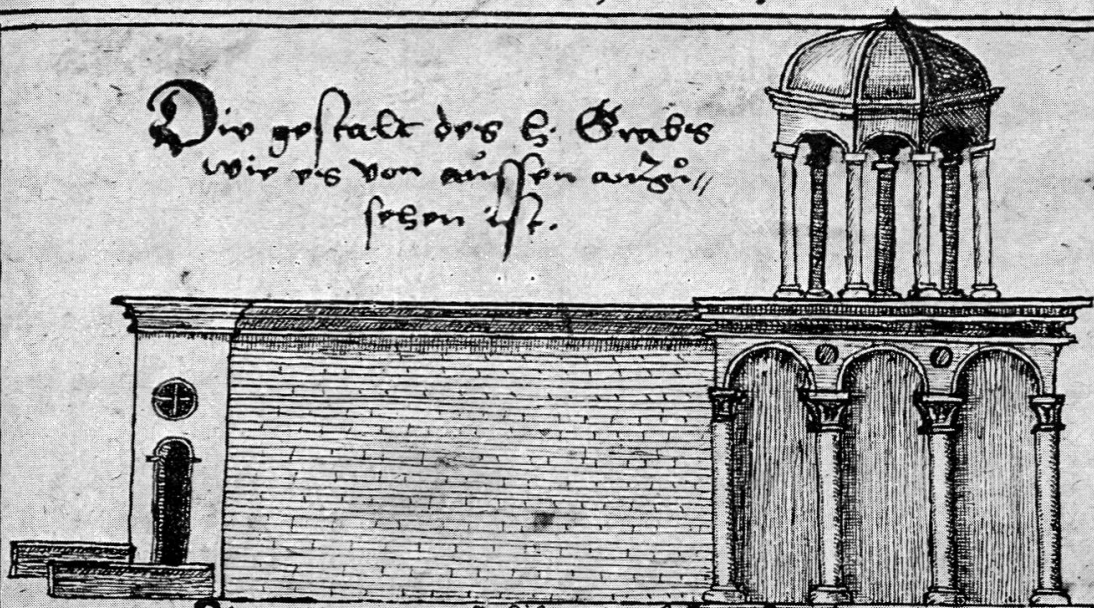 Die gestalt des h. Grabs
wie es von aussen anzů//
sehen ist.